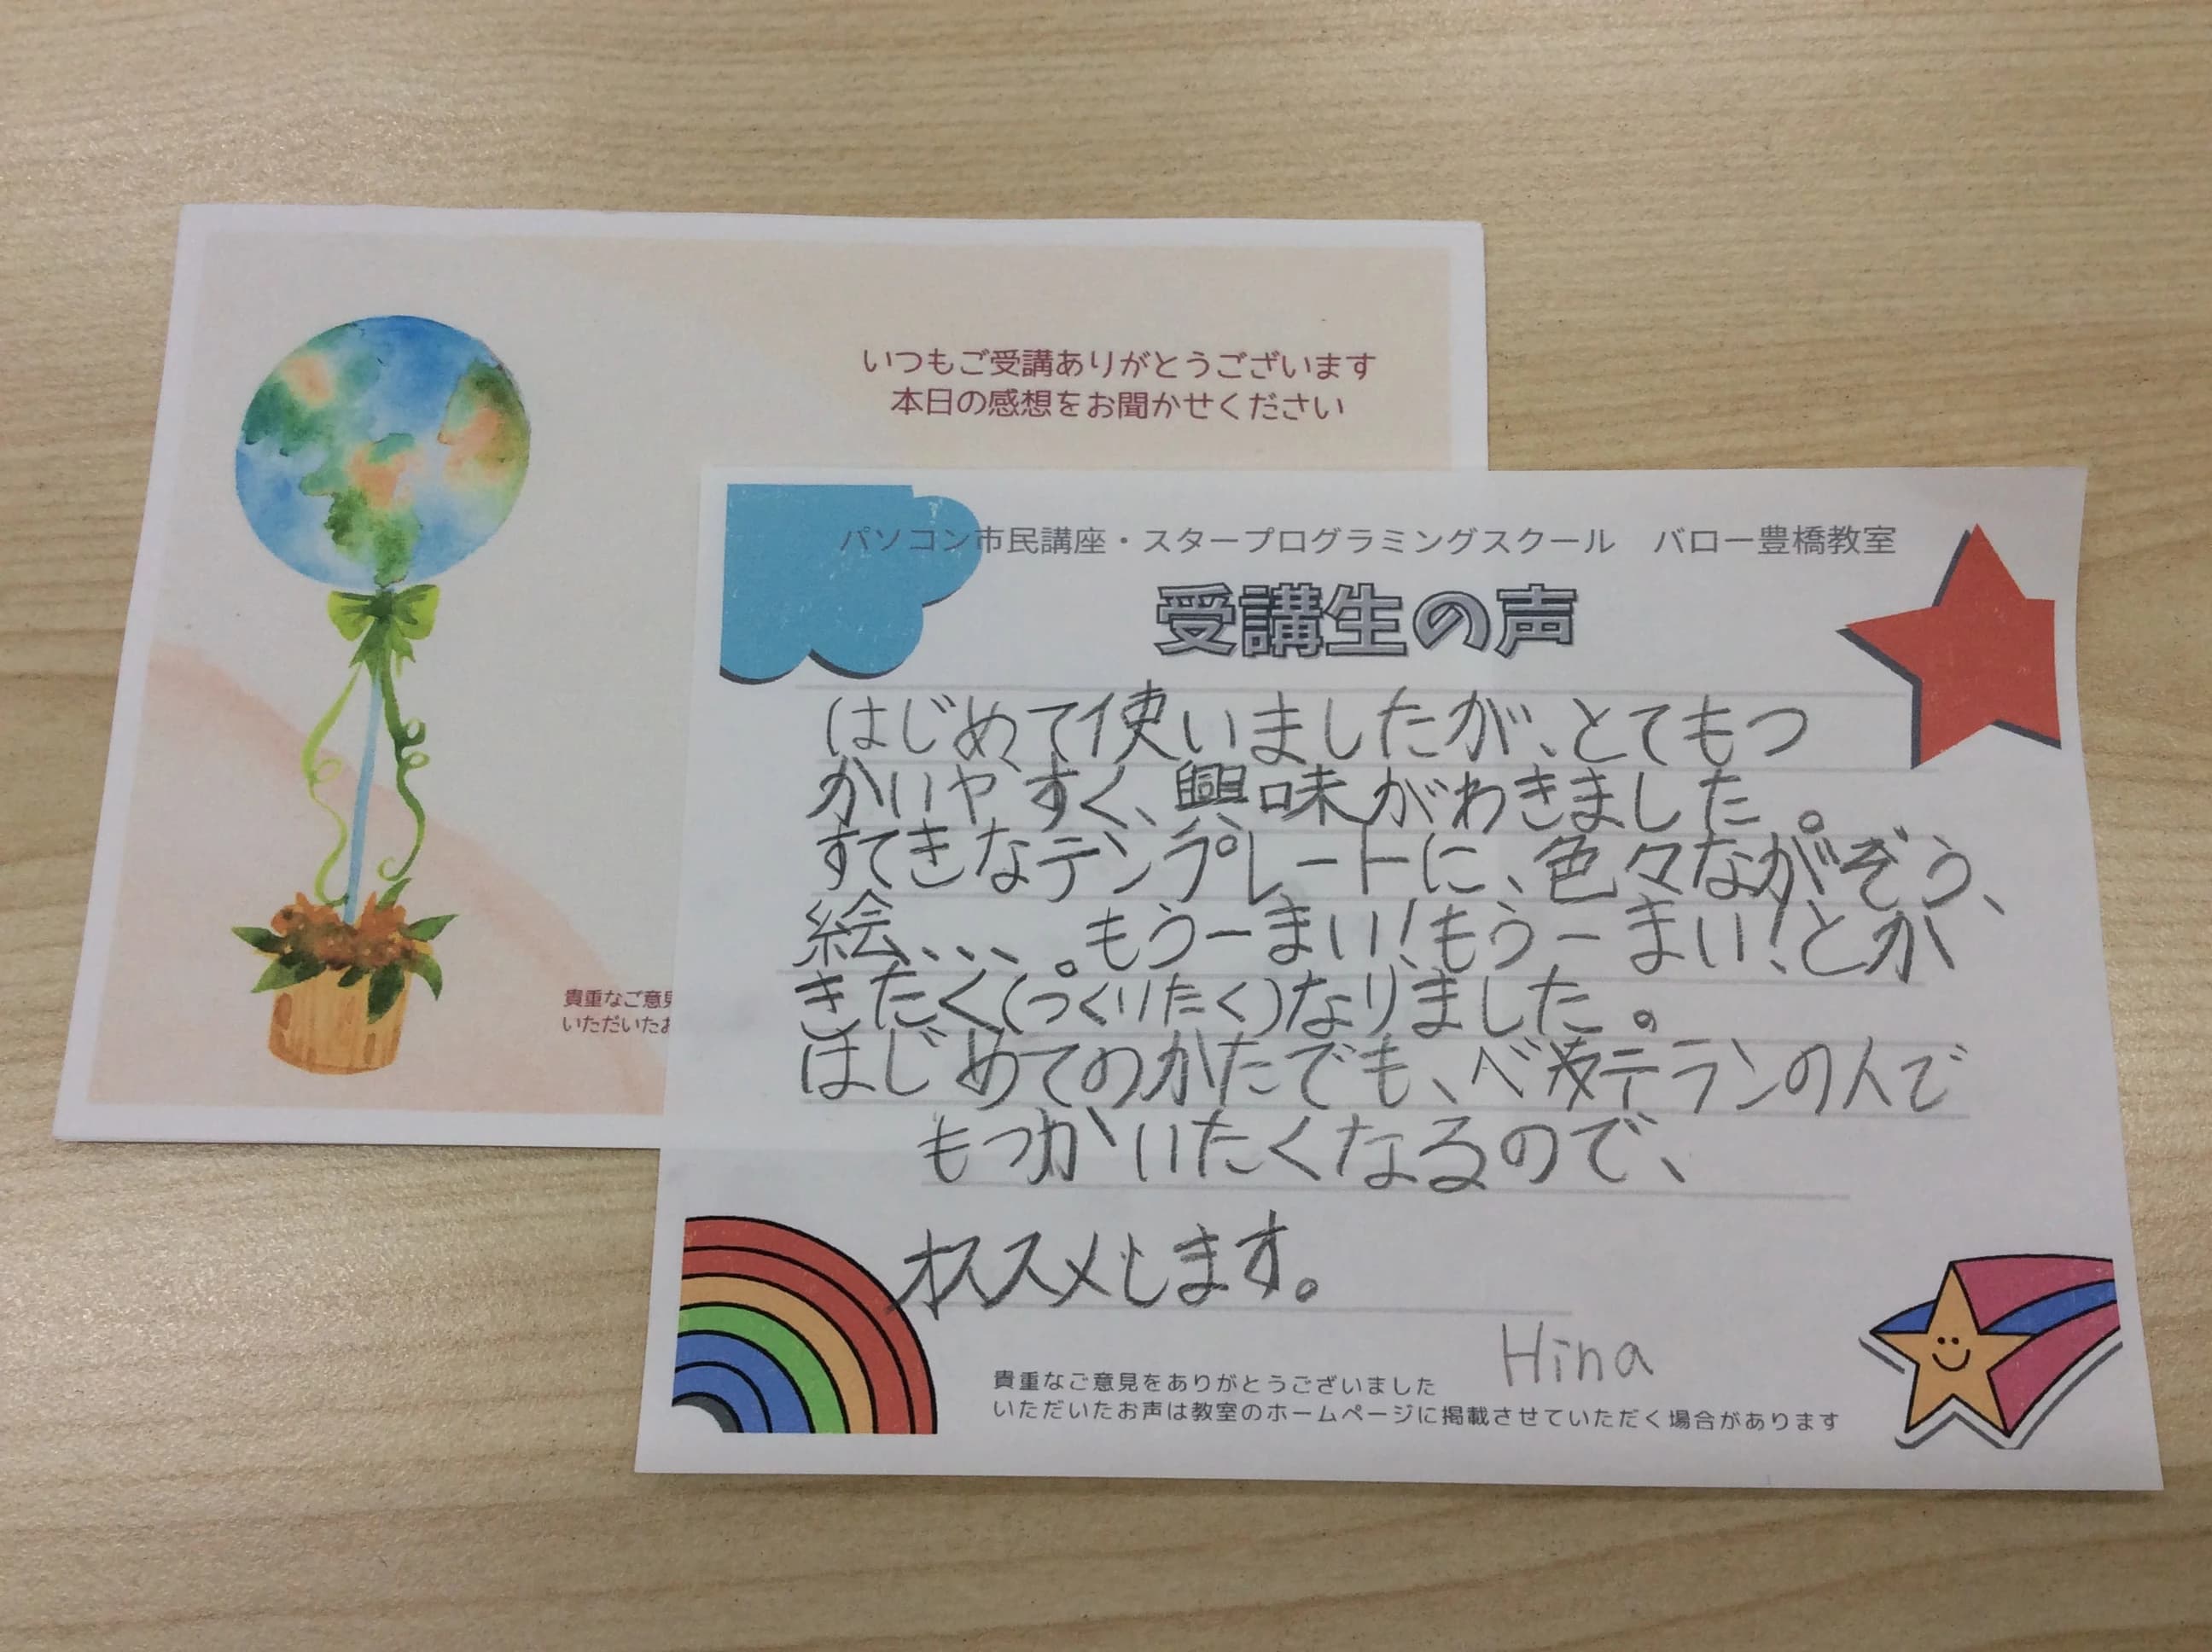 いつもご受講ありがとうございます
本日の感想をお聞かせください
貴重なご意見
いただいたお
パソコン市民講座・スタープログラミングスクール　バロー豊橋教室
受講生の声
はじめて使いましたが、とてもつ
かいやすく、興味がわきました。
すてきなテンプレートに、色々ながぞう、
絵、、、、。もう一まい!もう一まい!とか
きたく(つくりたく)なりました。
はじめてのかたでも、ベテランの人で
もつかいたくなるので、
オススメします。
Hina
貴重なご意見をありがとうございました
いただいたお声は教室のホームページに掲載させていただく場合があります